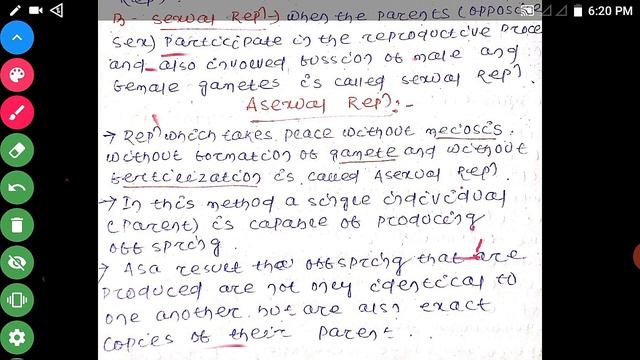 6:20 PM
B- sexual Repⁿ -) when the parents (opposite
sex) participate in the reproductive proce
and also involved fussion of male and
female gametes is called sexual Repⁿ.
Asexual Repⁿ:-
→ Repⁿ which takes peace without meciosis.
without formation of gamete and without
fertilization is called Asexual Repⁿ.
→ In this method a single individual
(parent) is capable of producing
off spring.
→ As a result the offspring that are
produced are not only identical to
one another but are also exact
copies of their parent.